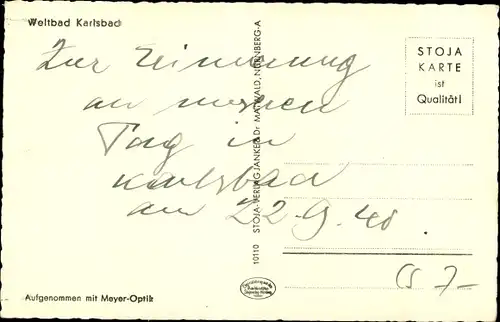 Weltbad Karlsbad
STOJA
KARTE
ist
Qualität!
Zur Erinnerung
an meinen
Tag in
Karlsbad
am 22.9.40
10110 STOJA-VERLAG JANKE & Dr MAIWALD, NÜRNBERG-A
Aufgenommen mit Meyer-Optik